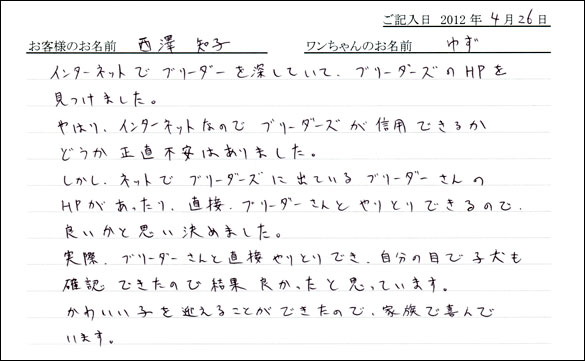 ご記入日 2012年 4月26日
お客様のお名前 西澤 知子 ワンちゃんのお名前 ゆず
インターネットでブリーダーを探していて、ブリーダーズのHPを
見つけました。
やはり、インターネットなのでブリーダーズが信用できるか
どうか正直不安はありました。
しかし、ネットでブリーダーズに出ているブリーダーさんの
HPがあったり、直接、ブリーダーさんとやりとりできるので、
良いかと思い決めました。
実際、ブリーダーさんと直接やりとりでき、自分の目で子犬も
確認できたので結果良かったと思っています。
かわいい子を迎えることができたので、家族で喜んで
います。